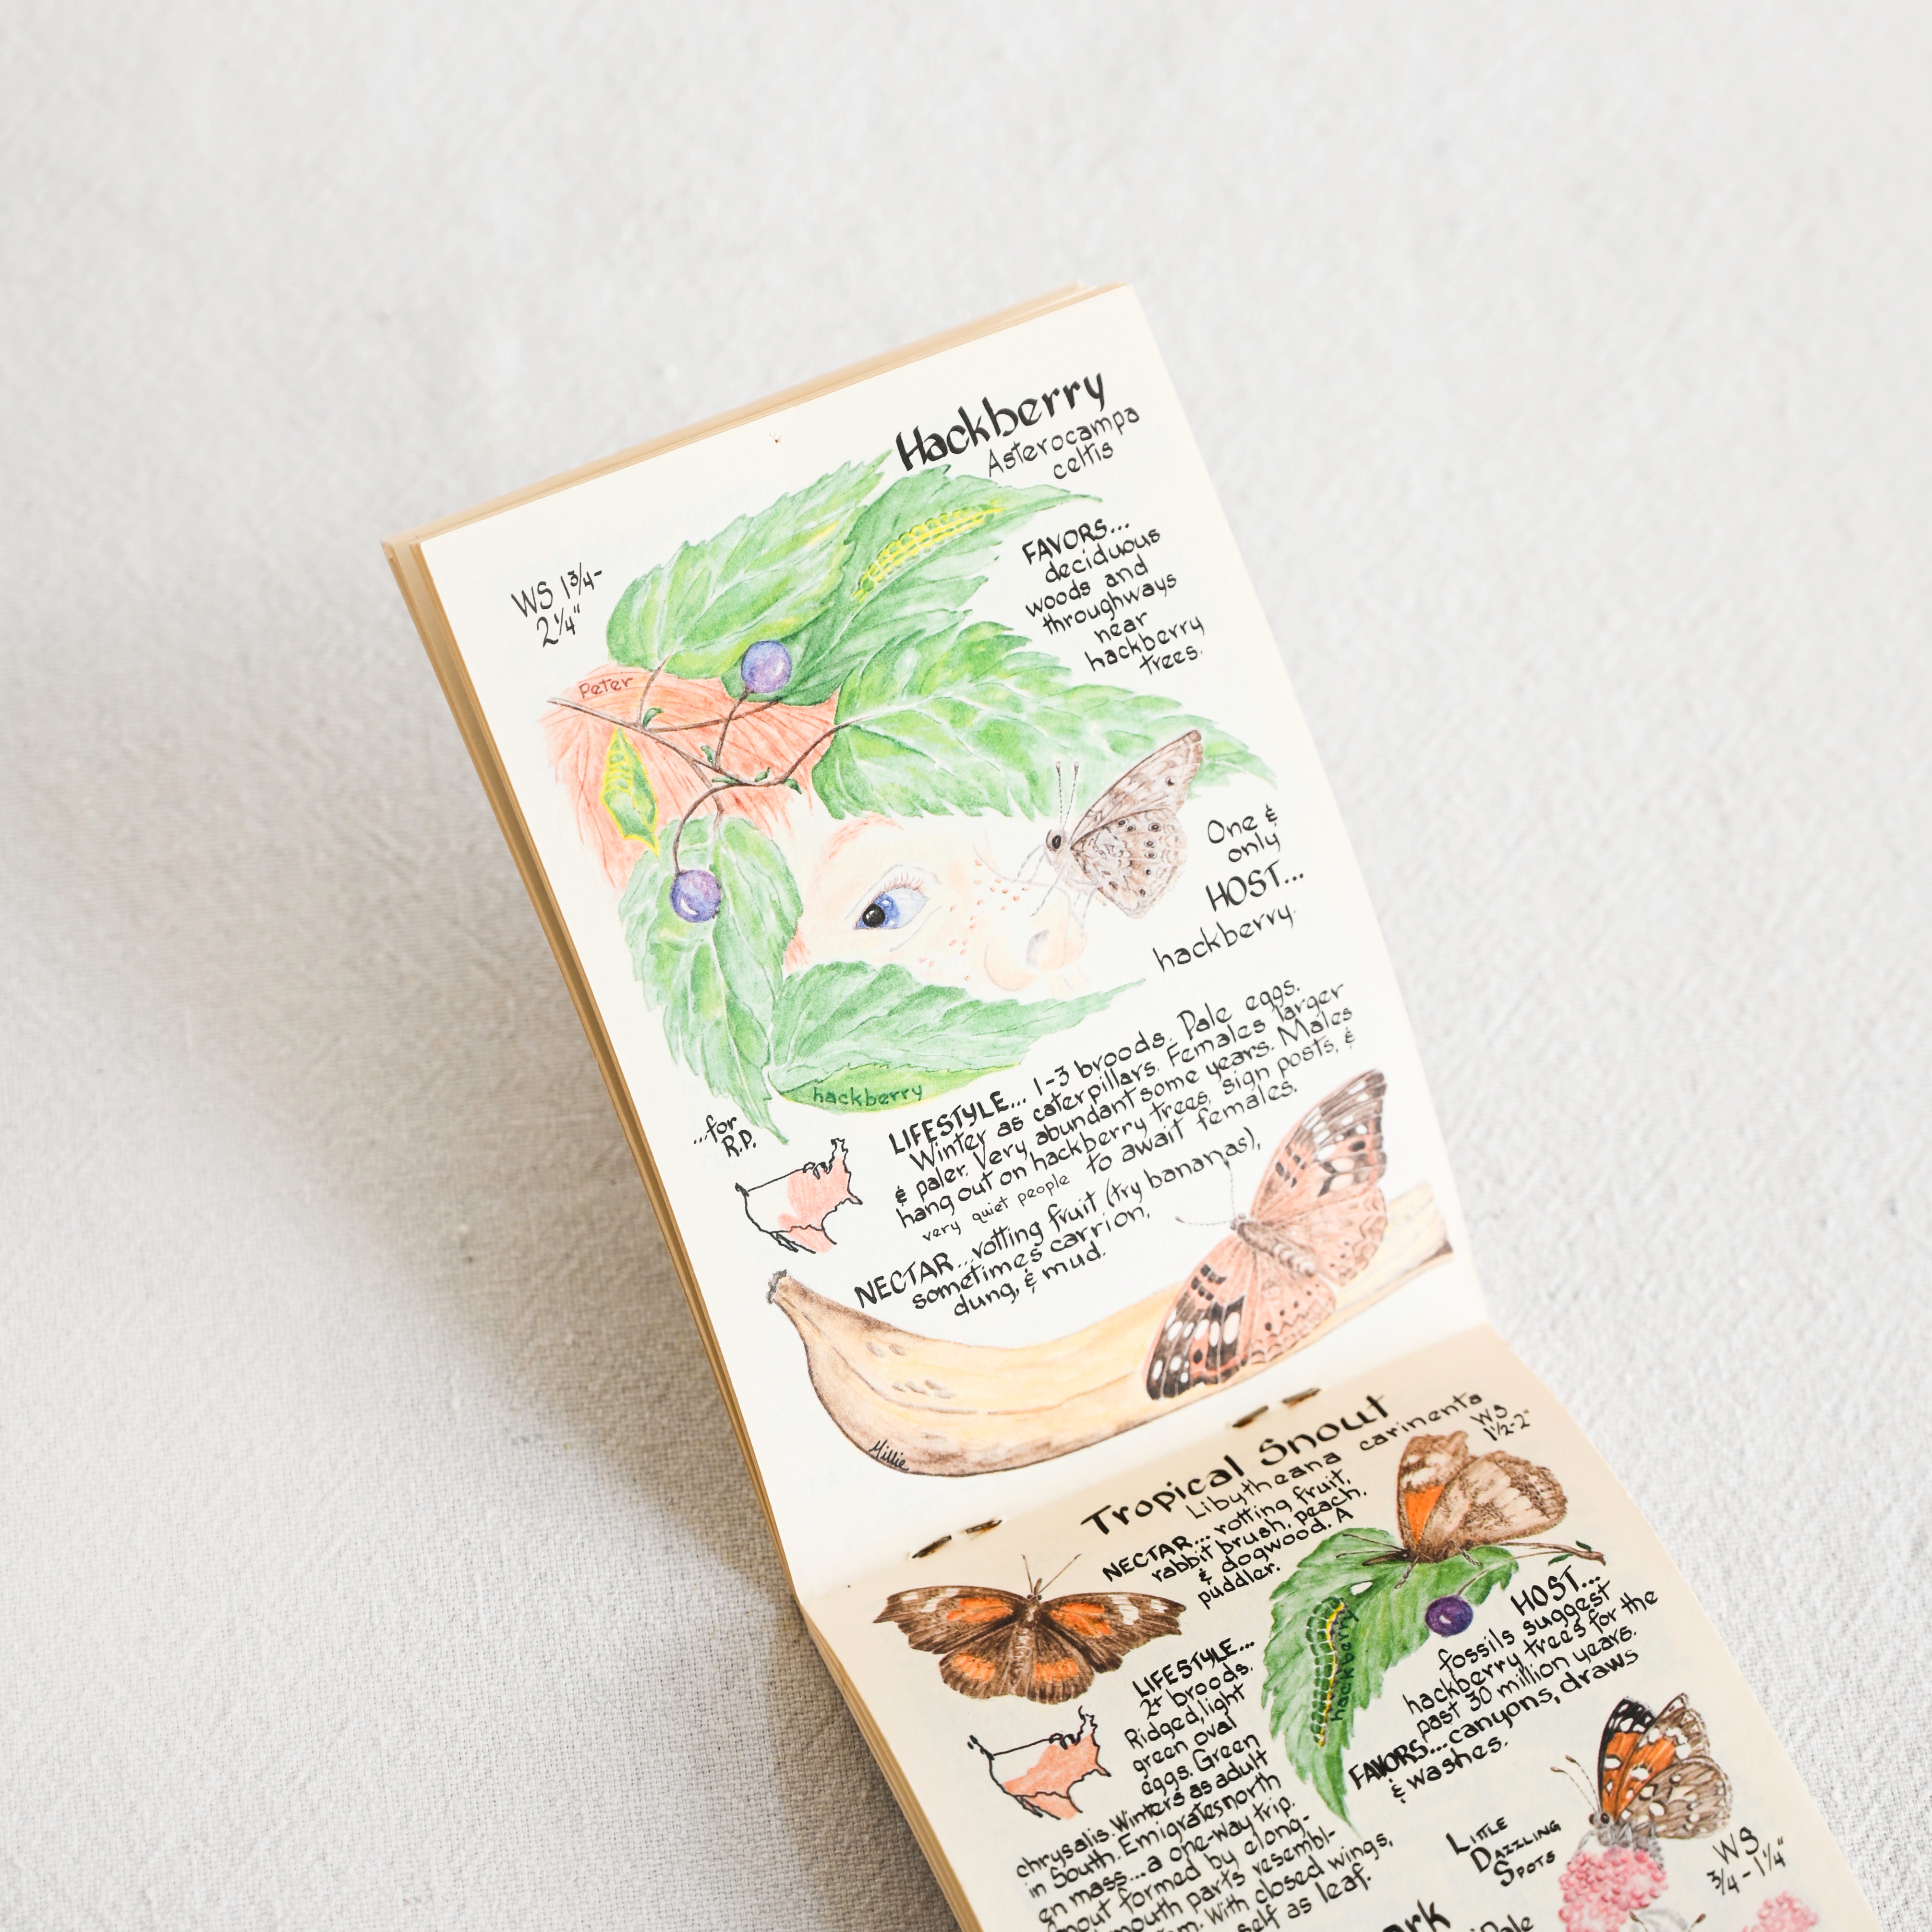 Hackberry
Asterocampa
celtis
WS 1¾-
2¼"
FAVORS...
deciduous
woods and
throughways
near
hackberry
trees.
Peter
One &
only
HOST...
hackberry.
hackberry
...for
R.P.
LIFESTYLE... 1-3 broods. Pale eggs.
Winter as caterpillars. Females larger
& paler. Very abundant some years. Males
hang out on hackberry trees, sign posts, &
very quiet people to await females.
NECTAR...rotting fruit (try bananas),
sometimes carrion,
dung, & mud.
Millie
Tropical Snout
Libytheana carinenta
WS
1½-2"
NECTAR... rotting fruit,
rabbit brush, peach,
& dogwood. A
puddler.
HOST...
fossils suggest
hackberry trees for the
past 30 million years.
FAVORS...canyons, draws
& washes.
hackberry
LIFESTYLE...
2+ broods.
Ridged, light
green oval
eggs. Green
chrysalis. Winters as adult
in South. Emigrates north
en mass...a one-way trip.
formed by elong-
mouth parts resembl-
With closed wings,
self as leaf.
LITTLE
DAZZLING
SPOTS
WS
¾-1¼"
Pale